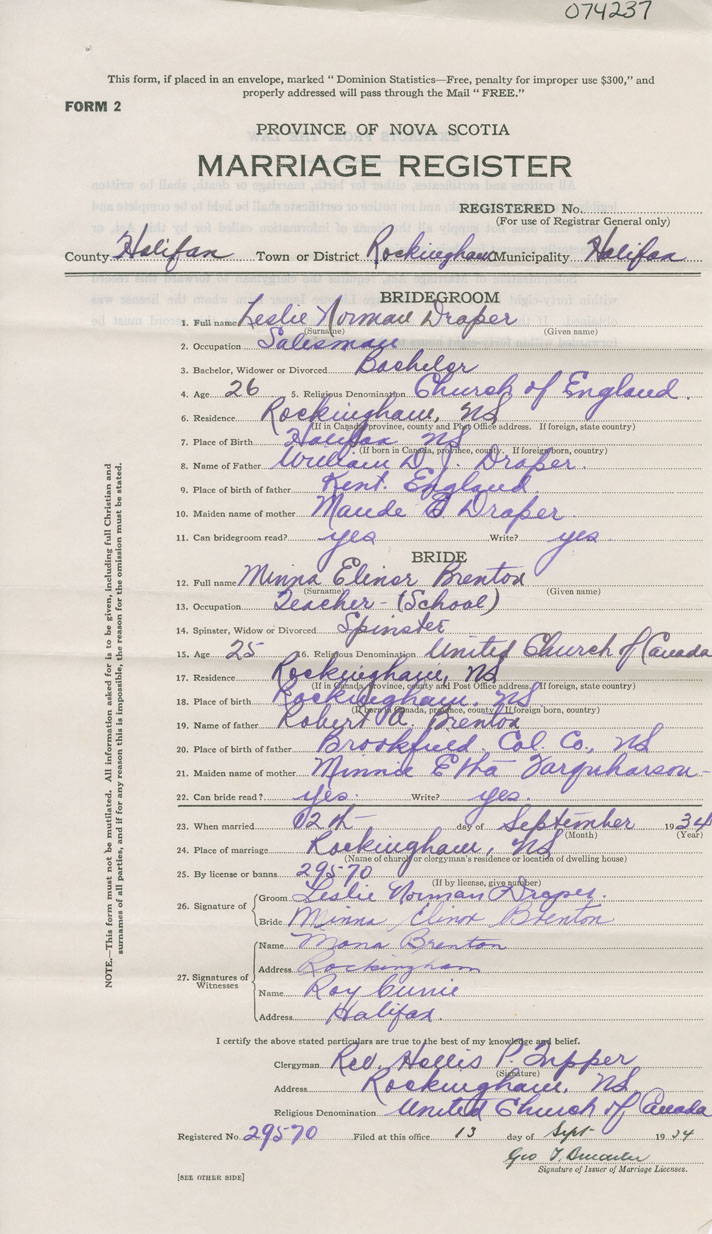 074237
This form, if placed in an envelope, marked “ Dominion Statistics—Free, penalty for improper use $300,” and
properly addressed will pass through the Mail “ FREE.”
FORM 2
PROVINCE OF NOVA SCOTIA
MARRIAGE REGISTER
REGISTERED No.
(For use of Registrar General only)
County Halifax Town or District Rockingham Municipality Halifax
BRIDEGROOM
1. Full name Leslie Norman Draper
(Surname) (Given name)
2. Occupation Salesman
3. Bachelor, Widower or Divorced Bachelor
4. Age 26 5. Religious Denomination Church of England.
6. Residence Rockingham, NS
(If in Canada, province, county and Post Office address. If foreign, state country)
7. Place of Birth Halifax NS
(If born in Canada, province, county. If foreign born, country)
8. Name of Father William D. J. Draper.
9. Place of birth of father Kent. England
10. Maiden name of mother Maude Draper
11. Can bridegroom read? yes Write? yes
BRIDE
12. Full name Minna Elinor Brenton
(Surname) (Given name)
13. Occupation Teacher - (School)
14. Spinster, Widow or Divorced Spinster
15. Age 25 16. Religious Denomination United Church of Canada
17. Residence Rockingham, NS
(If in Canada, province, county and Post Office address. If foreign, state country)
18. Place of birth Rockingham, NS
(If born in Canada, province, county. If foreign born, country)
19. Name of father Robert A. Brenton
20. Place of birth of father Brookfield, Col. Co., NS
21. Maiden name of mother Minnie Etha Farquharson -
22. Can bride read? yes. Write? yes.
23. When married 12th day of September 1934
(Month) (Year)
24. Place of marriage Rockingham, NS
(Name of church or clergyman's residence or location of dwelling house)
25. By license or banns 29570
(If by license, give number)
26. Signature of Groom Leslie Norman Draper.
Bride Minna Elinor Brenton
27. Signatures of Witnesses
Name Mona Brenton
Address Rockingham
Name Roy Currie
Address Halifax.
I certify the above stated particulars are true to the best of my knowledge and belief.
Clergyman Rev. Hollis P. Tupper
(Signature)
Address Rockingham, NS
Religious Denomination United Church of Canada
Registered No. 29570 Filed at this office 13 day of Sept 1934
Geo T.
Signature of Issuer of Marriage Licenses.
[SEE OTHER SIDE]
NOTE.—This form must not be mutilated. All information asked for is to be given, including full Christian and
surnames of all parties, and if for any reason this is impossible, the reason for the omission must be stated.